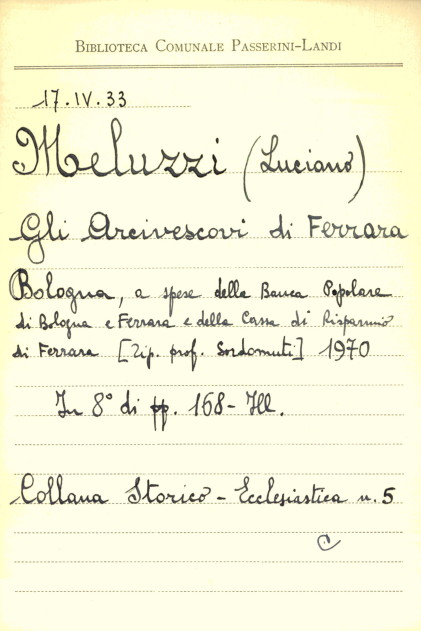 BIBLIOTECA COMUNALE PASSERINI-LANDI
17.IV.33
Meluzzi (Luciano)
Gli Arcivescovi di Ferrara
Bologna, a spese della Banca Popolare
di Bologna e Ferrara e della Cassa di Risparmio
di Ferrara [Tip. prof. Sordomuti] 1970
In 8° di pp. 168 - Ill.
Collana Storico - Ecclesiastica n. 5
C